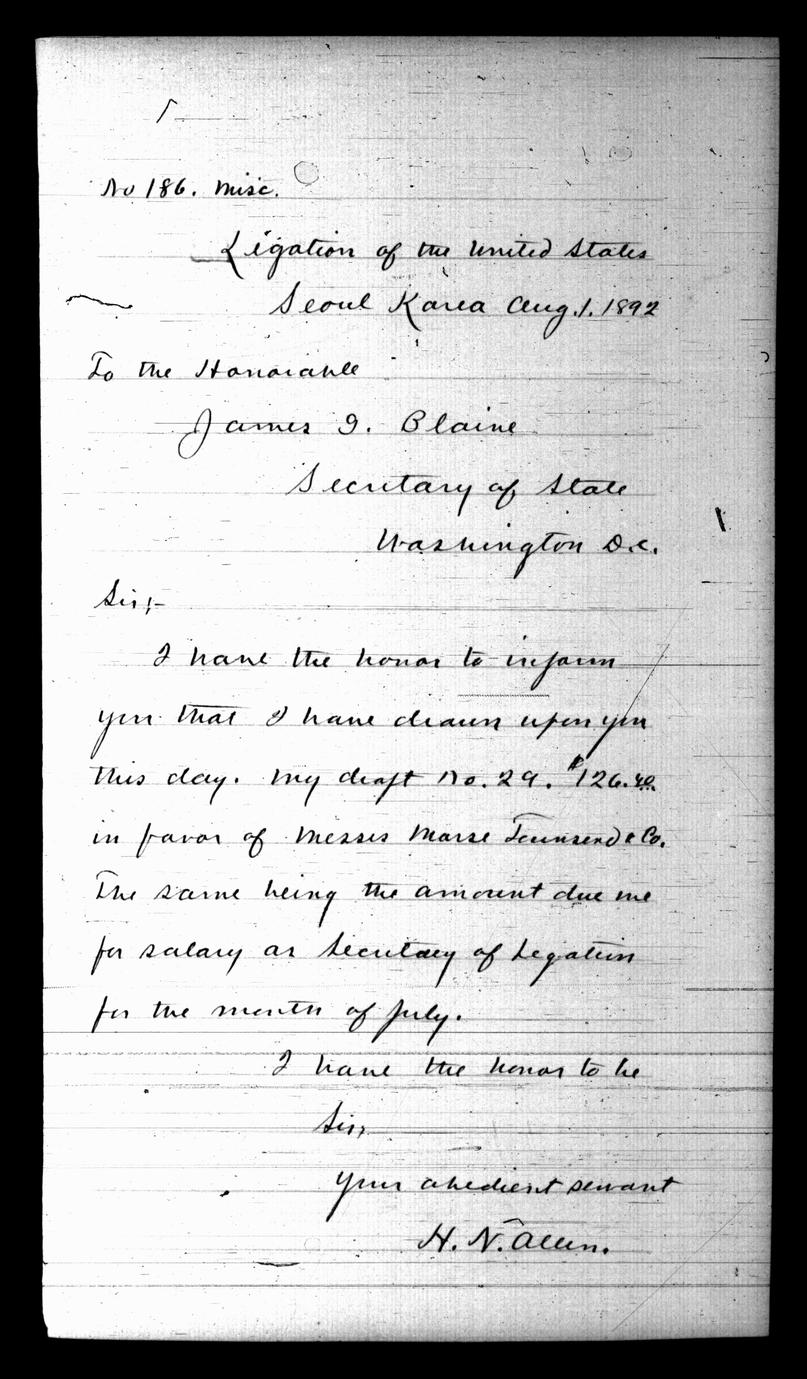 No 186. Misc.
Legation of the United States
Seoul Korea Aug. 1. 1892
To the Honorable
James G. Blaine
Secretary of State
Washington D.C.
Sir;-
I have the honor to inform
you that I have drawn upon you
this day. My draft No. 29. $126.40
in favor of Messrs Morse Townsend & Co.
The same being the amount due me
for salary as Secretary of Legation
for the month of July.
I have the honor to be
Sir,
Your obedient servant
H. N. Allen.